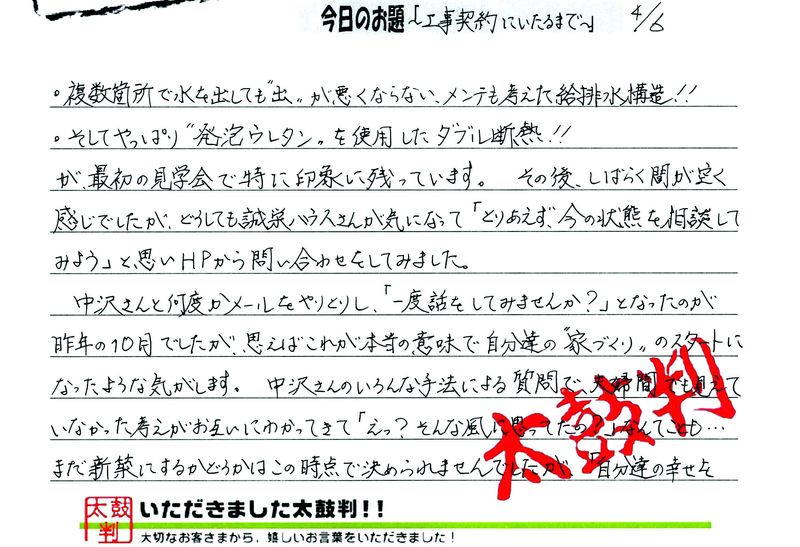 今日のお題「～工事契約にいたるまで～」 4/6
◦複数箇所で水を出しても"出"が悪くならない、メンテも考えた給排水構造!!
◦そしてやっぱり"発泡ウレタン"を使用したダブル断熱!!
が、最初の見学会で特に印象に残っています。 その後、しばらく間が空く
感じでしたが、どうしても誠栄ハウスさんが気になって「とりあえず、今の状態を相談して
みよう」と思いHPから問い合わせをしてみました。
中沢さんと何度かメールをやりとりし、「一度話をしてみませんか?」となったのが
昨年の10月でしたが、思えばこれが本当の意味で自分達の"家づくり"のスタートに
なったような気がします。 中沢さんのいろんな手法による質問で、夫婦間でも見えて
いなかった考えがお互いにわかってきて「えっ?そんな風に思ってたの?」なんてことも…
まだ新築にするかどうかはこの時点で決められませんでしたが、「自分達の幸せを
太鼓判
太鼓判
いただきました太鼓判!!
大切なお客さまから、嬉しいお言葉をいただきました!